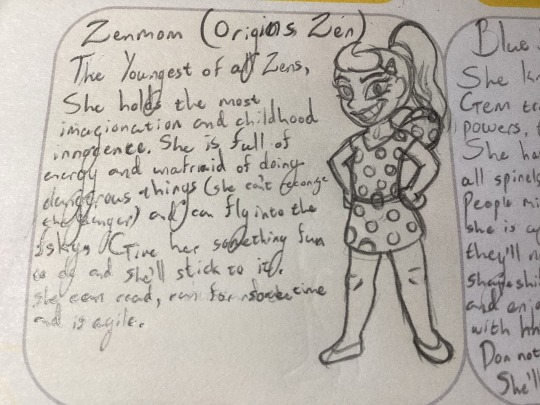 Zenmom (Origins Zen)
The Youngest of all Zens,
She holds the most
imagionation and childhood
innocence. She is full of
energy and unafraid of doing
dangerous things (she can't
the danger) and can fly into the
skys. Give her something fun
to do and she'll stick to it.
She can read, run for sometime
and is agile.
Blue
She
Gem
powers,
She ha
all spinels
People mi
she is
they'll n
shapeshi
and enj
with hh
Don not
She'll